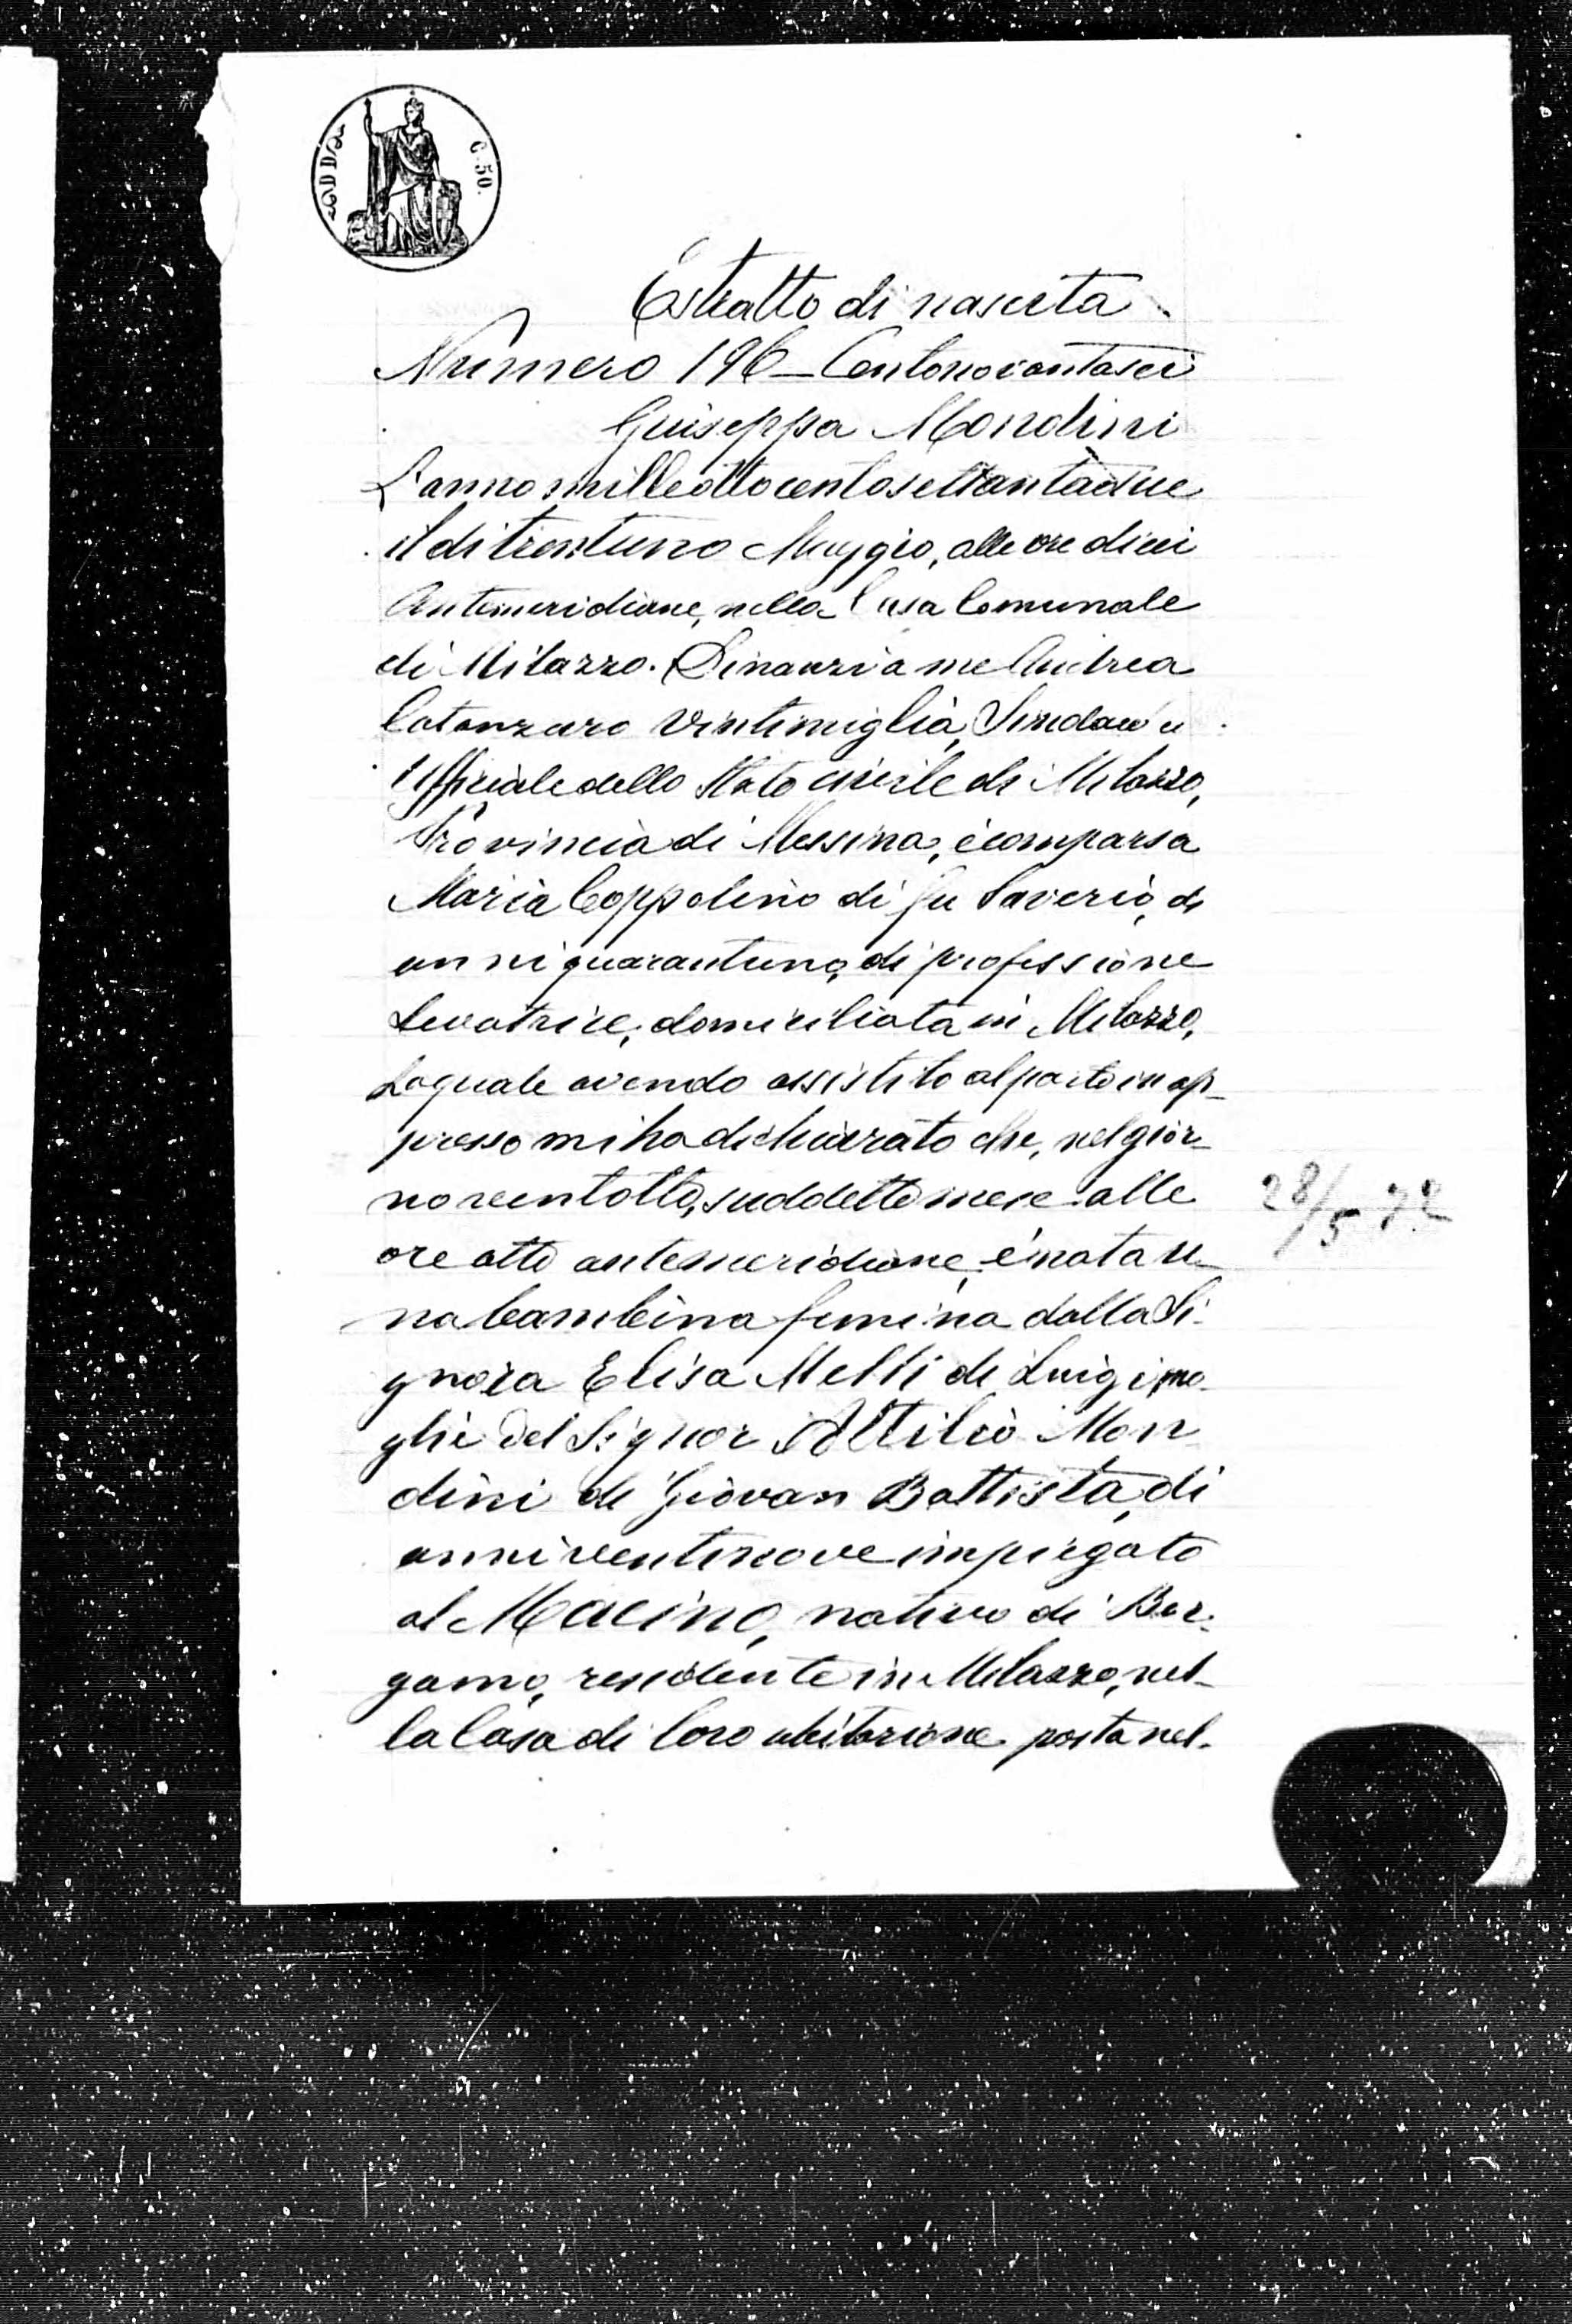 C. 50.
Estratto di nascita
Numero 196 - Centonovantasei
Giuseppa Mondini
L'anno milleottocentosettantadue
il di trentuno Maggio, alle ore dieci
Antimeridiane, nella Casa Comunale
di Milazzo. Dinanzi a me Andrea
Catanzaro Vintimiglia, Sindaco u
Uffiziale dello Stato civile di Milazzo,
Provincia di Messina, è comparsa
Maria Coppolino di fu Saverio, di
anni quarantuno, di professione
Levatrice, domiciliata in Milazzo,
La quale avendo assistito al parto in ap-
presso mi ha dichiarato che, nel gior-
no ventotto, suddetto mese alle
ore otto antemeridiane, è nata u-
na bambina femina dalla Si-
gnora Elisa Melli di Luigi, mo-
glie del Signor Attilio Mon
dini di Giovan Battista, di
anni ventinove impiegato
al Macino, nativo di Ber-
gamo, residente in Milazzo, nel-
la Casa di loro abitazione posta nel-
28/5 72